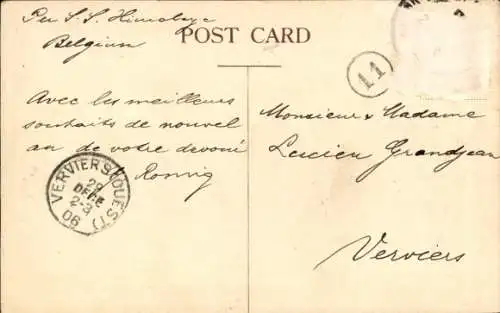 Per S.S. Himalaya
Belgium
POST CARD
11
Avec les meilleurs
souhaits de nouvel
an de votre dévoué
Monsieur & Madame
Lucien Grandjean
Verviers
VERVIERS (OUEST)
29
DECE
2-3
06